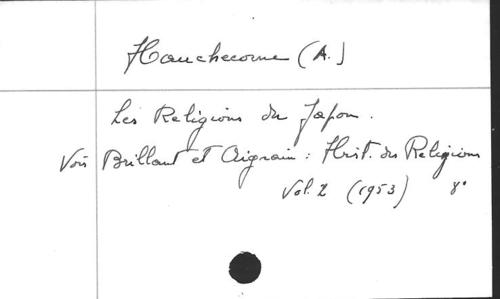 Hauchecorne (A.)
Les Religions du Japon.
Voir Brillant et Aigrain : Hist. des Religions
Vol. 2 (1953) 8°